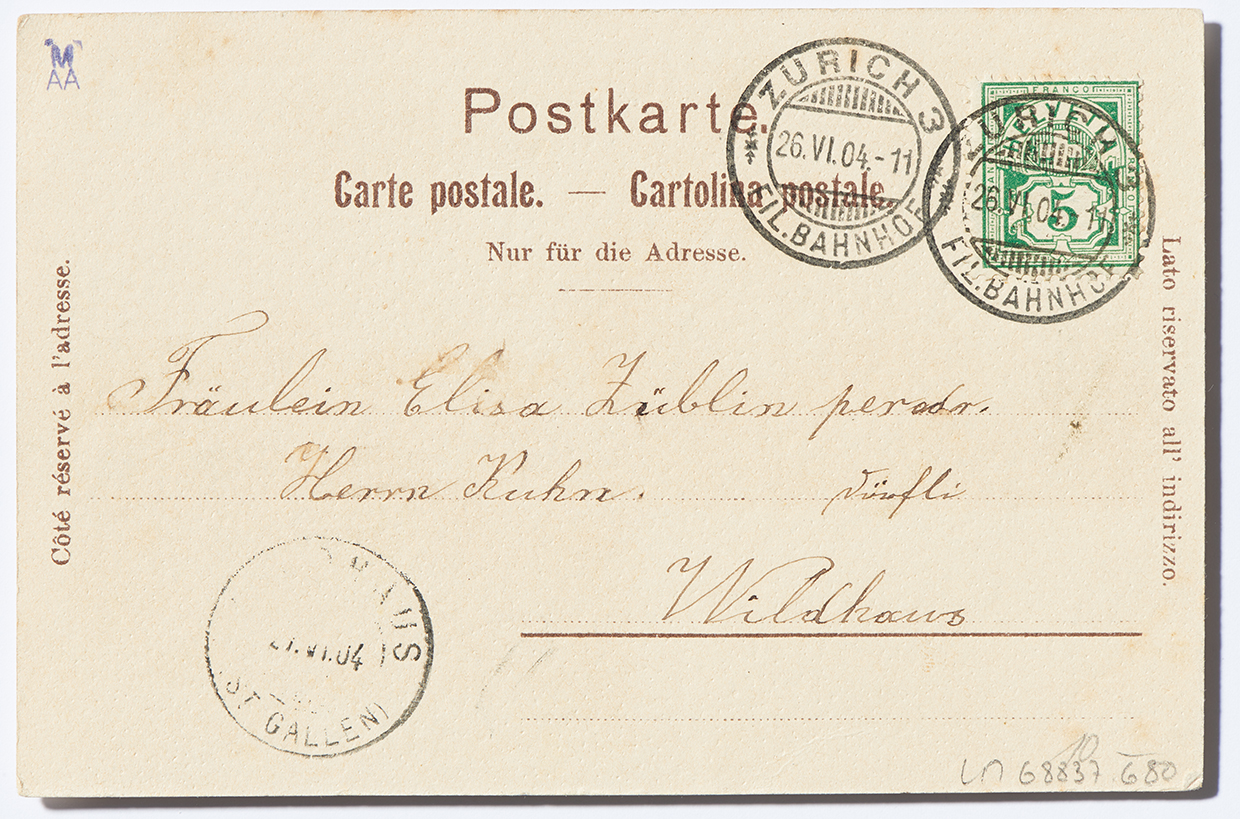 M
AA
Postkarte.
Carte postale. — Cartolina postale.
Nur für die Adresse.
Côté réservé à l'adresse.
Lato riservato all' indirizzo.
ZÜRICH 3
26.VI.04.-11
FIL.BAHNHOF
FRANCO
5
ZÜRICH 3
26.VI.04.-11
FIL.BAHNHOF
Fräulein Elisa Züblin per adr.
Herrn Kuhn. Dörfli
Wildhaus
HAUS
27.VI.04
(ST GALLEN)
LM 68837 680